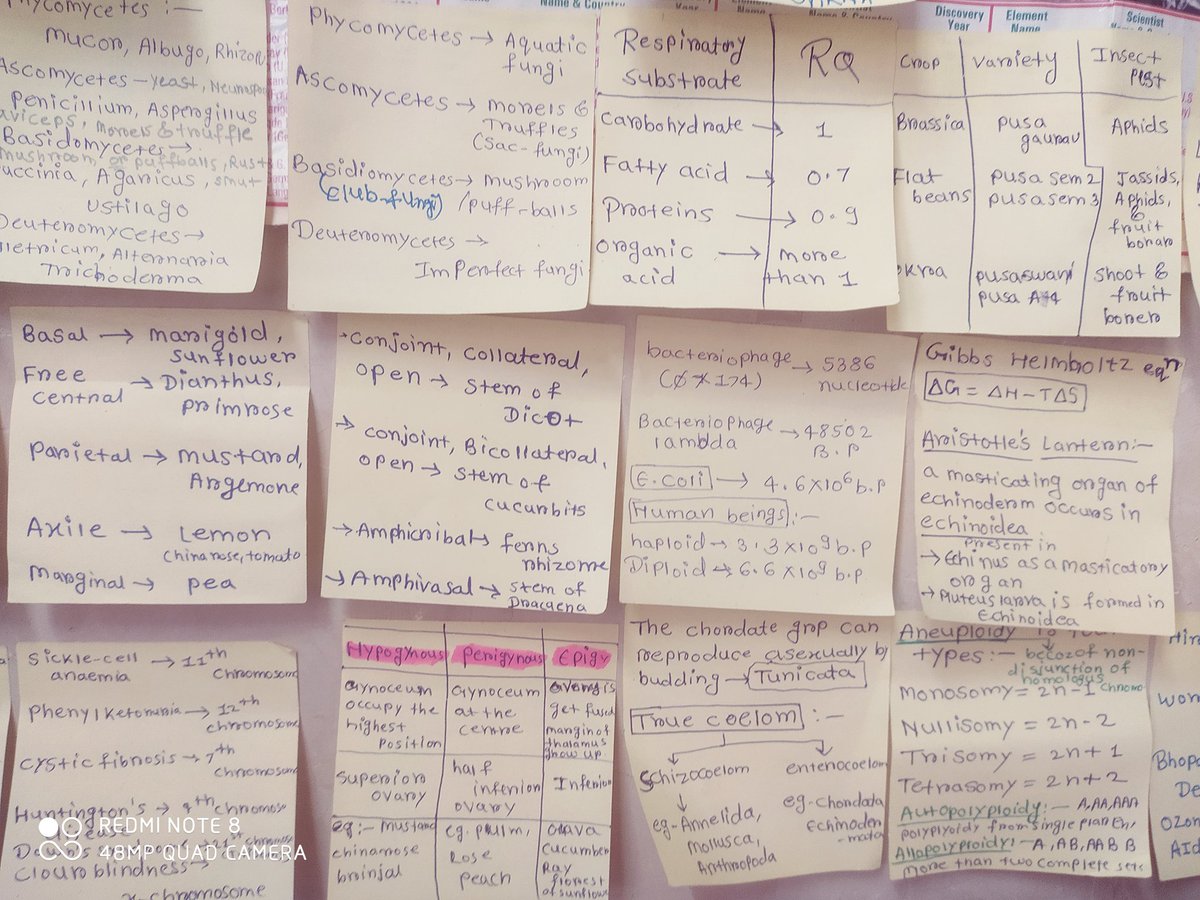 Name & Country
Year
Element
Name
Name & Country
Discovery
Year
Element
Name
Scientist
Phycomycetes :-
Mucor, Albugo,
Ascomycetes - yeast,
Penicillium, Aspergillus
Morels & truffle
Basidomycetes →
mushroom, or puffballs, Rust
Agaricus, smut
Ustilago
Deuteromycetes →
Alternaria
Trichoderma
Phycomycetes → Aquatic
fungi
Ascomycetes → morels &
Truffles
(Sac-fungi)
Basidiomycetes → mushroom
(club-fungi) /puff-balls
Deuteromycetes →
Imperfect fungi
Respiratory substrate RQ
Carbohydrate → 1
Fatty acid → 0.7
Proteins → 0.9
organic acid → more than 1
Crop variety Insect Pest
Brassica pusa gaurav Aphids
Flat beans pusa sem 2 pusa sem 3 Jassids, Aphids, & fruit borer
okra pusa swani pusa A-4 shoot & fruit borer
Basal → marigold,
sunflower
Free central → Dianthus,
primrose
Parietal → mustard,
Argemone
Axile → Lemon
chinarose, tomato
Marginal → pea
→ conjoint, collateral,
open → stem of
Dicot
→ conjoint, Bicollateral,
open → stem of
cucurbits
→ Amphicribal → ferns
rhizome
→ Amphivasal → stem of
Dracaena
bacteriophage → 5386
(Ø×174) nucleotide
Bacteriophage lambda → 48502
B.P
E.coli → 4.6×10⁶ b.p
Human beings :-
haploid → 3.3×10⁹ b.p
Diploid → 6.6×10⁹ b.p
Gibbs Helmboltz eqⁿ
ΔG = ΔH - TΔS
Aristotle's Lantern:-
a masticating organ of
echinoderm occurs in
echinoidea
present in
→ Echinus as a masticatory
organ
→ Pluteus larva is formed in
Echinoidea
Sickle-cell anaemia → 11th
chromosome
Phenylketonuria → 12th
chromosome
cystic fibrosis → 7th
chromosome
Huntington's →
chromosome
Clour blindness →
x-chromosome
Hypogynous Perigynous Epigy
Gynoceum
occupy the
highest
position
Gynoceum
at the
centre
ovary is
get fused
margin of
thalamus
grow up
Superior
ovary
half
inferior
ovary
Inferior
eg:- mustard
chinarose
brinjal
eg. plum,
rose
peach
cucumber
Ray
florest
of sunflow
The chordate grp can
reproduce asexually by
budding → Tunicata
True coelom :-
schizocoelom enterocoelom
eg- Annelida,
Mollusca,
Arthropoda
eg- chordata
Echinoder-
mata
Aneuploidy
types :- becoz of non-
disjunction of
homologus
chromo
Monosomy = 2n-1
Nullisomy = 2n-2
Trisomy = 2n+1
Tetrasomy = 2n+2
Autopolyploidy :- A, AA, AAA
Polyplyoidy from single
Allopolyploidy :- A, AB, AAB B
more than two complete sets
Bhopa
De
Ozon
AId
REDMI NOTE 8
48MP QUAD CAMERA